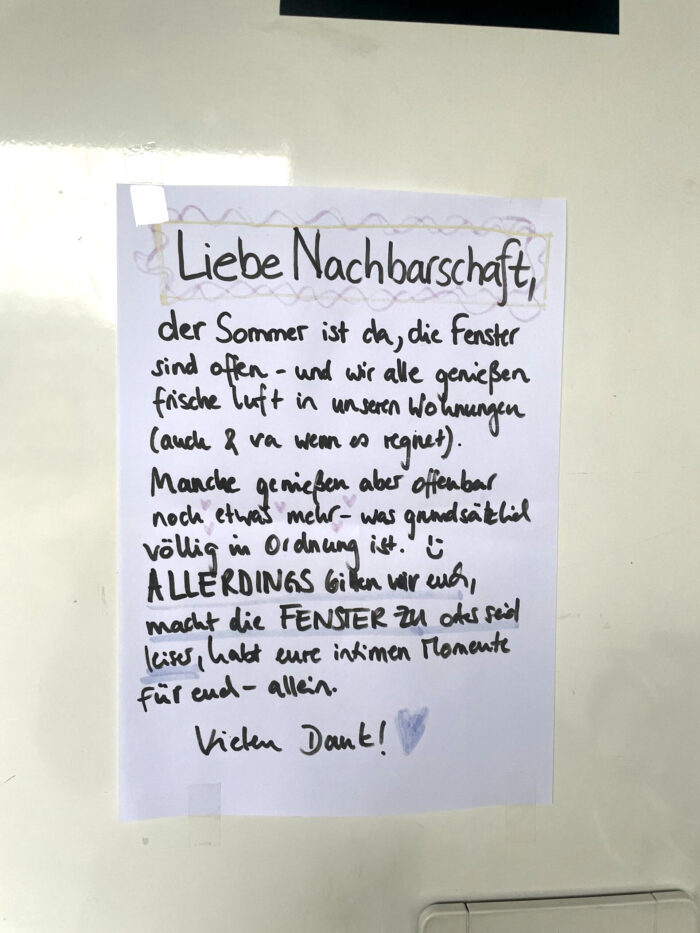 Liebe Nachbarschaft,
der Sommer ist da, die Fenster
sind offen - und wir alle genießen
frische Luft in unseren Wohnungen
(auch & va wenn es regnet).
Manche genießen aber offenbar
noch etwas mehr - was grundsätzlich
völlig in Ordnung ist. :)
ALLERDINGS bitten wir euch,
macht die FENSTER ZU oder seid
leiser, habt eure intimen Momente
für euch - allein.
Vielen Dank!